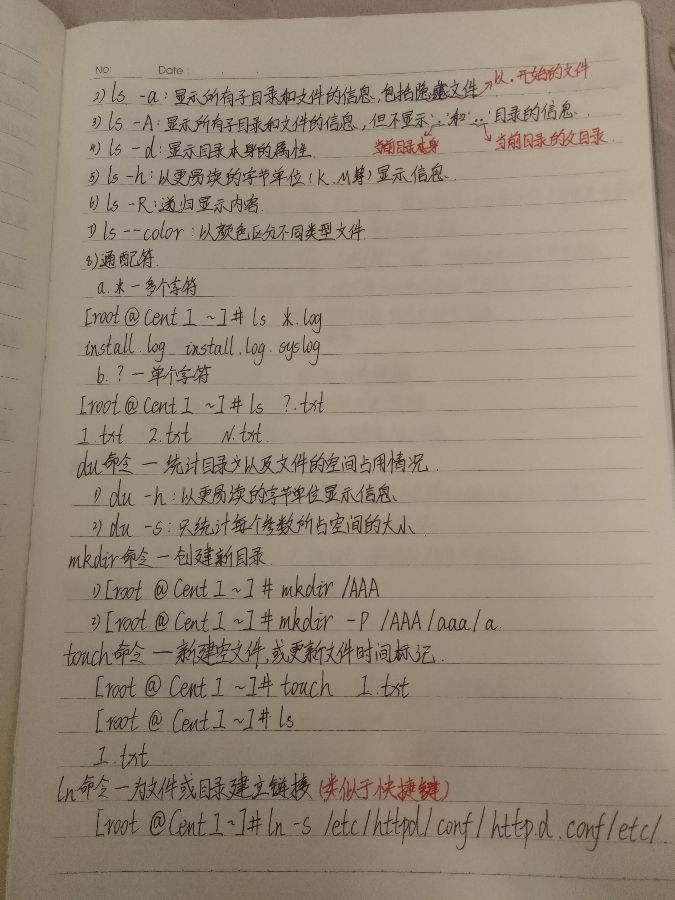 No: Date: . . .
2) ls -a: 显示所有子目录和文件的信息,包括隐藏文件 以.开始的文件
3) ls -A: 显示所有子目录和文件的信息,但不显示'.'和'..'目录的信息.
当前目录本身 当前目录的父目录.
4) ls -d: 显示目录本身的属性.
5) ls -h: 以更易读的字节单位(K、M等)显示信息.
6) ls -R: 递归显示内容.
7) ls --color: 以颜色区分不同类型文件
8) 通配符.
a. * — 多个字符
[root @ Cent 1 ~]# ls *.log
install.log install.log.syslog
b. ? — 单个字符
[root @ Cent 1 ~]# ls ?.txt
1.txt 2.txt N.txt.
du命令 — 统计目录以及文件的空间占用情况.
1) du -h: 以更易读的字节单位显示信息.
2) du -s: 只统计每个参数所占空间的大小.
mkdir命令 — 创建新目录.
1) [root @ Cent 1 ~]# mkdir /AAA
2) [root @ Cent 1 ~]# mkdir -P /AAA/aaa/a.
touch命令 — 新建空文件,或更新文件时间标记.
[root @ Cent 1 ~]# touch 1.txt
[root @ Cent 1 ~]# ls
1.txt
ln命令 — 为文件或目录建立链接 (类似于快捷键)
[root @ Cent 1 ~]# ln -s /etc/httpd/conf/http.d.conf/etc/.